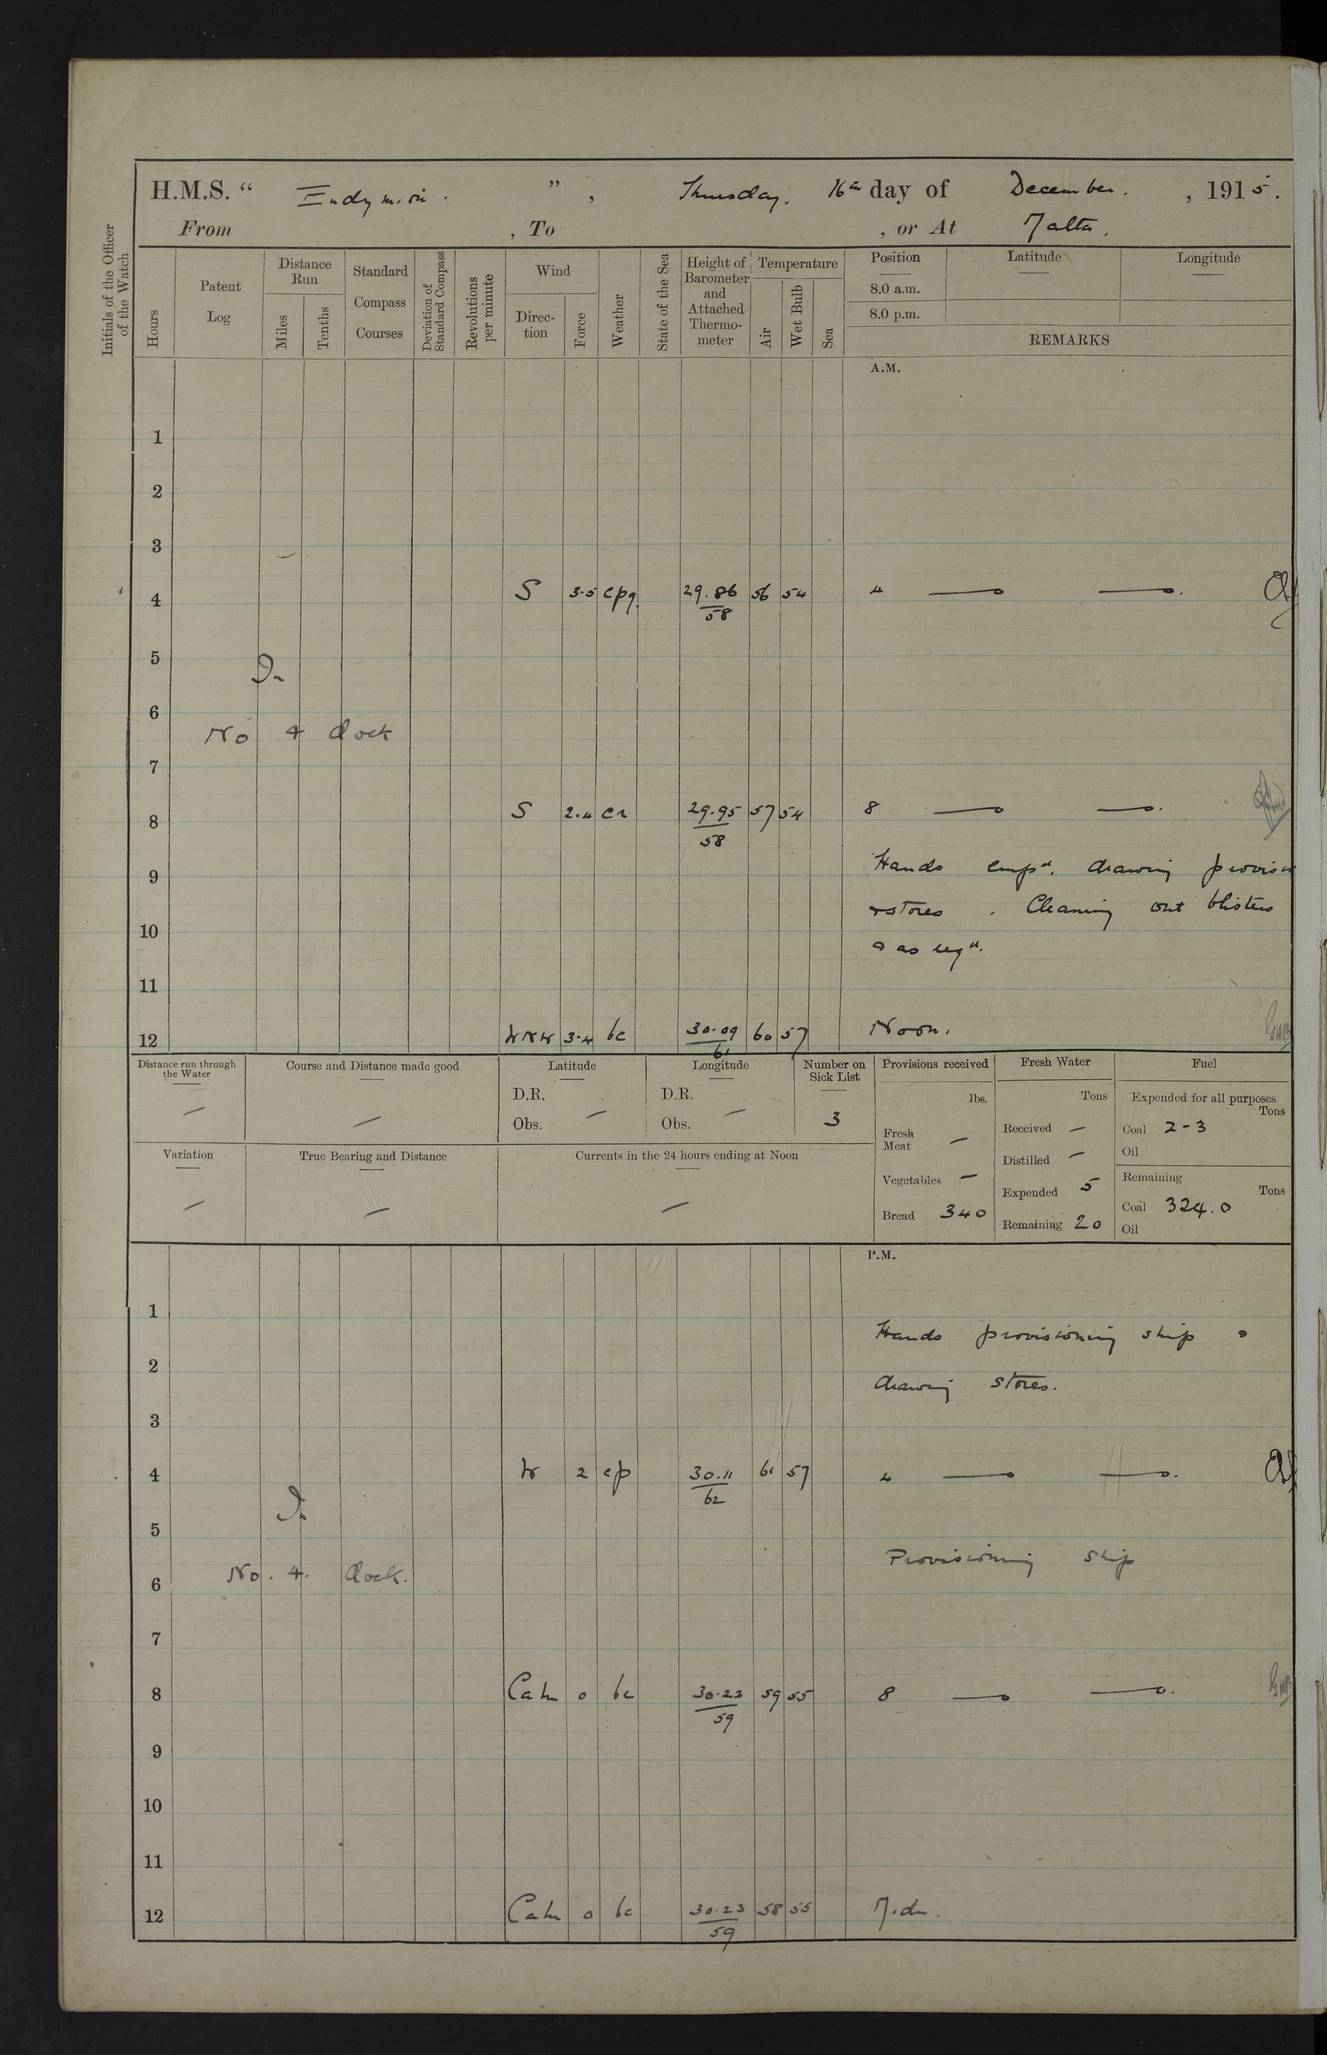 H.M.S. " Endymion. ", Thursday. 16th day of December. , 1915.
From , To , or At Malta.
Initials of the Officer of the Watch
Hours
Patent Log
Distance Run
Miles
Tenths
Standard Compass Courses
Deviation of Standard Compass
Revolutions per minute
Wind
Direction
Force
Weather
State of the Sea
Height of Barometer and Attached Thermometer
Temperature
Air
Wet Bulb
Sea
Position Latitude Longitude
8.0 a.m.
8.0 p.m.
REMARKS
A.M.
1
2
3
4 S 3.5 cpq. 29.86/58 56 54 4
5
In
6
No 4 dock
7
8 S 2.4 cr 29.95/58 57 54 8
9 Hands empd. drawing provisn
& stores. Cleaning out blisters
10
& as reqd.
11
12 WNW 3.4 bc 30.09/61 60 57 Noon.
Distance run through the Water —
Course and Distance made good —
Latitude
D.R.
Obs. —
Longitude
D.R.
Obs. —
Number on Sick List
3
Provisions received
lbs.
Fresh Meat —
Vegetables —
Bread 340
Fresh Water
Tons
Received —
Distilled —
Expended 5
Remaining 20
Fuel
Expended for all purposes
Tons
Coal 2-3
Oil
Remaining
Tons
Coal 324.0
Oil
Variation —
True Bearing and Distance —
Currents in the 24 hours ending at Noon —
P.M.
1
Hands provisioning ship &
2
drawing stores.
3
4 W 2 cp 30.11/62 61 57 4
In
5
Provisioning ship
No. 4. dock.
6
7
8 Calm 0 bc 30.23/59 59 55 8
9
10
11
12 Calm 0 bc 30.23/59 58 55 Mdn.